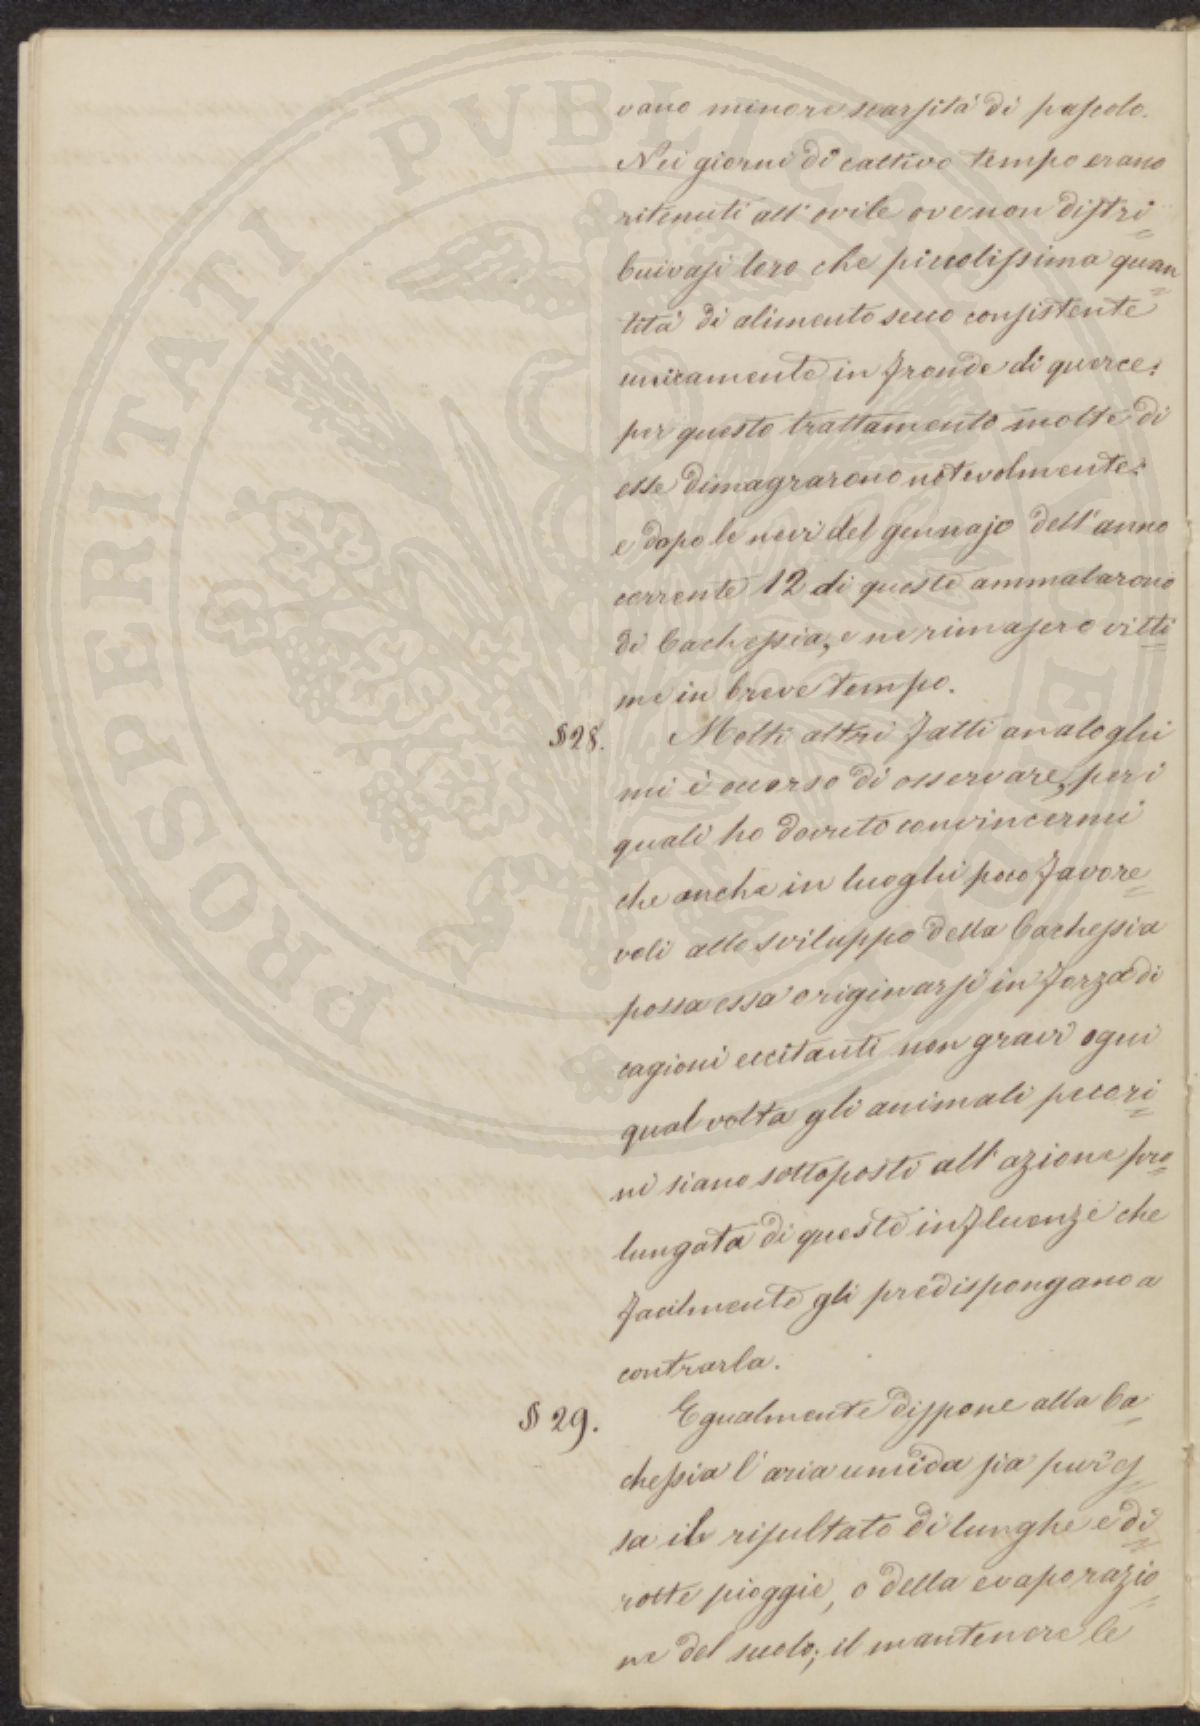 vano minore scarsità di pascolo.
Nei giorni di cattivo tempo erano
ritenuti all'ovile ove non distri
buivasi loro che piccolissima quan
tità di alimento secco consistente
unicamente in fronde di querce:
per questo trattamento molte di
esse dimagrarono notevolmente:
e dopo le nevi del gennajo dell'anno
corrente 12 di queste ammalarono
di Cachessia, e ne rimasero vitti
me in breve tempo.
§ 28. Molti altri fatti analoghi
mi è occorso di osservare, per i
quali ho dovuto convincermi
che anche in luoghi poco favore
voli allo sviluppo della Cachessia
possa essa originarsi in forza di
cagioni eccitanti non gravi ogni
qual volta gli animali pecori
ni siano sottoposti all'azione pro
lungata di queste influenze che
facilmente gli predispongano a
contrarla.
§ 29. Egualmente dispone alla Ca
chessia l'aria umida sia pur es
sa il risultato di lunghe e di
rotte pioggie, o della evaporazio
ne del suolo; il mantenere le
PROSPERITATI PVBLICAE AVGENDAE